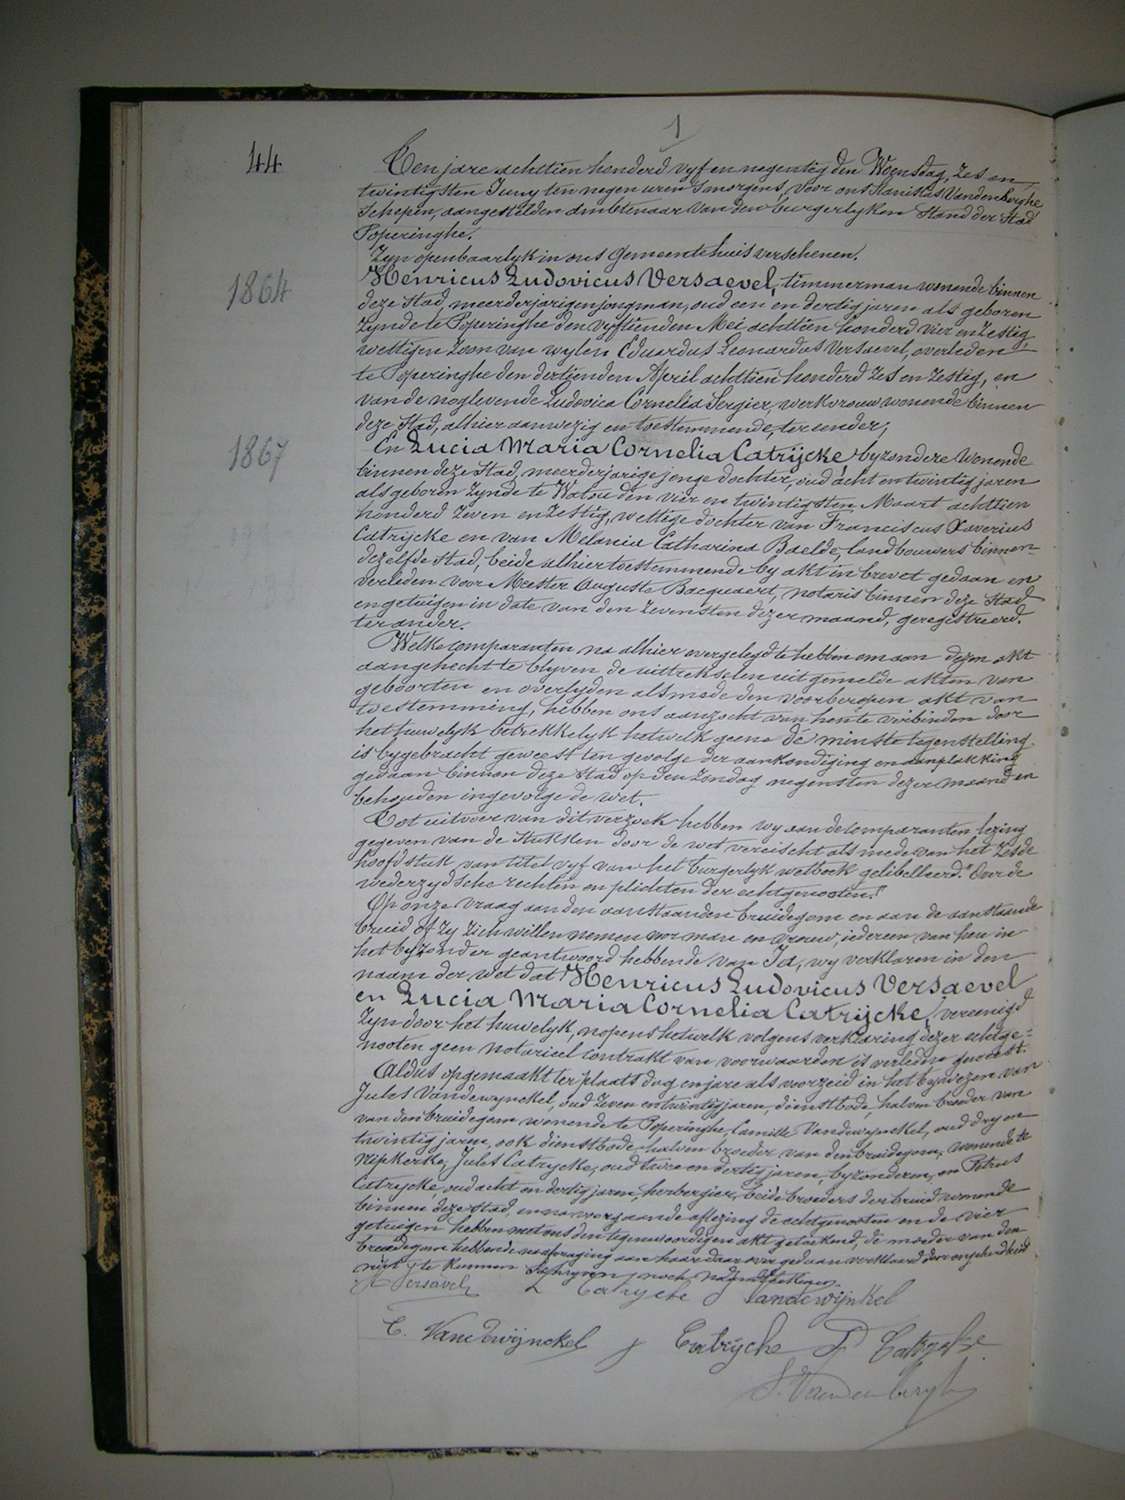 1
44
Ten jare achttien honderd vyf en negentig den Woensdag, zes en
twintigsten Juny ten negen uren 'smorgens, voor ons Stanislas Vandenberghe
Schepen, aangestelden ambtenaar van den burgerlyken Stand der Stad
Poperinghe.
Zyn openbaarlyk in ons Gemeentehuis verschenen.
1864
Henricus Ludovicus Versaevel, timmerman wonende binnen
deze Stad, meerderjarigen jongman, oud een en dertig jaren als geboren
zynde te Poperinghe den vyftienden Mei achttien honderd vier en zestig,
wettigen zoon van wylen Eduardus Leonardus Versaevel, overleden
te Poperinghe den dertienden April achttien honderd zes en zestig, en
van de noglevende Ludovica Cornelia Sergier, werkvrouw wonende binnen
deze Stad, alhier aanwezig en toestemmende, ter eender;
1867
En Lucia Maria Cornelia Catrijcke, byzondere wonende
binnen deze Stad, meerderjarige jonge dochter, oud acht en twintig jaren
als geboren zynde te Watou den vier en twintigsten Maart achttien
honderd zeven en zestig, wettige dochter van Franciscus Xaverius
Catrijcke en van Melania Catharina Baelde, landbouwers binnen
dezelfde Stad, beide alhier toestemmende by akt in brevet gedaan en
verleden voor Meester Auguste Bacquaert, notaris binnen deze Stad
en getuigen in date van den zevensten dezer maand, geregistreerd.
ter ander.
Welke comparanten na alhier overgelegd te hebben om aan dezen akt
aangehecht te blyven de uittrekselen uit gemelde akten van
geboorten en overlyden alsmede den voorberoepen akt van
toestemming, hebben ons aanzocht van hen te verbinden door
het huwelyk betrekkelyk hetwelk geene de minste tegenstelling
is bygebracht geweest ten gevolge der aankondiging en aanplakking
gedaan binnen deze Stad op den zondag negensten dezer maand en
behouden ingevolge de wet.
Tot uitvoer van dit verzoek hebben wy aan de comparanten lezing
gegeven van de stukken door de wet vereischt als mede van het zesde
hoofdstuk van titel vyf van het burgerlyk wetboek gelibelleerd: "Over de
wederzydsche rechten en plichten der echtgenooten."
Op onze vraag aan den aanstaanden bruidegom en aan de aanstaande
bruid of zy zich willen nemen voor man en vrouw, iedereen van hen in
het byzonder geantwoord hebbende van Ja, wy verklaren in den
naam der wet dat Henricus Ludovicus Versaevel
en Lucia Maria Cornelia Catrijcke, vereenigd
zyn door het huwelyk, nopens hetwelk volgens verklaring dezer echtge=
nooten geen notarieel contrakt van voorwaarden is verleden geweest.
Aldus opgemaakt ter plaats dag en jare als voorzeid in het bywezen van
Jules Vandewynckel, oud zeven en twintig jaren, dienstbode, halven broeder van
van den bruidegom wonende te Poperinghe, Camille Vandewynckel, oud dry en
twintig jaren, ook dienstbode halven broeder van den bruidegom, wonende te
Niepkerke, Jules Catrycke, oud twee en dertig jaren, byzonderen, en Petrus
Catrycke, oud acht en dertig jaren, herbergier, beide broeders der bruid wonende
binnen deze Stad, en na voorgaande aflezing de echtgenooten en de vier
getuigen hebben met ons den tegenwoordigen akt geteekend, de moeder van den
bruidegom hebbende na afvraging aan haar daar over gedaan verklaard door ongeleerdheid
niet te kunnen schryven noch naamteekenen.
H Versavel L Catrycke J Vandewijnkel
C. Vandewijnckel J Catrycke P Catrycke
S. Vandenberghe